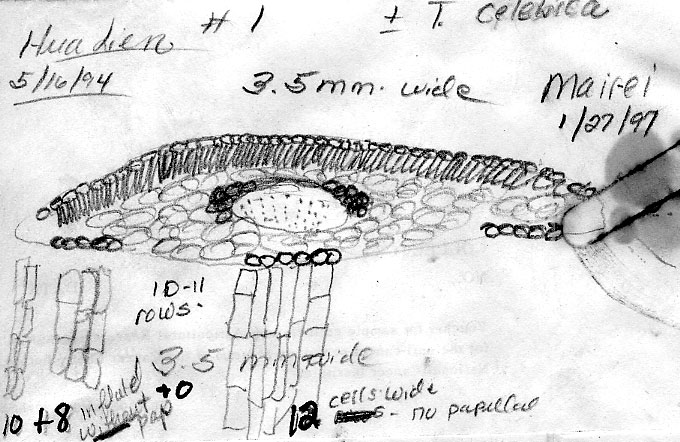 Huadien # 1 ± T. celebica
5/16/94
3.5 mm. wide
Mairei
1/27/97
10-11
rows-
3.5 mm wide
10 + 8 Inflated without pap +0 12 cells wide - no papillae